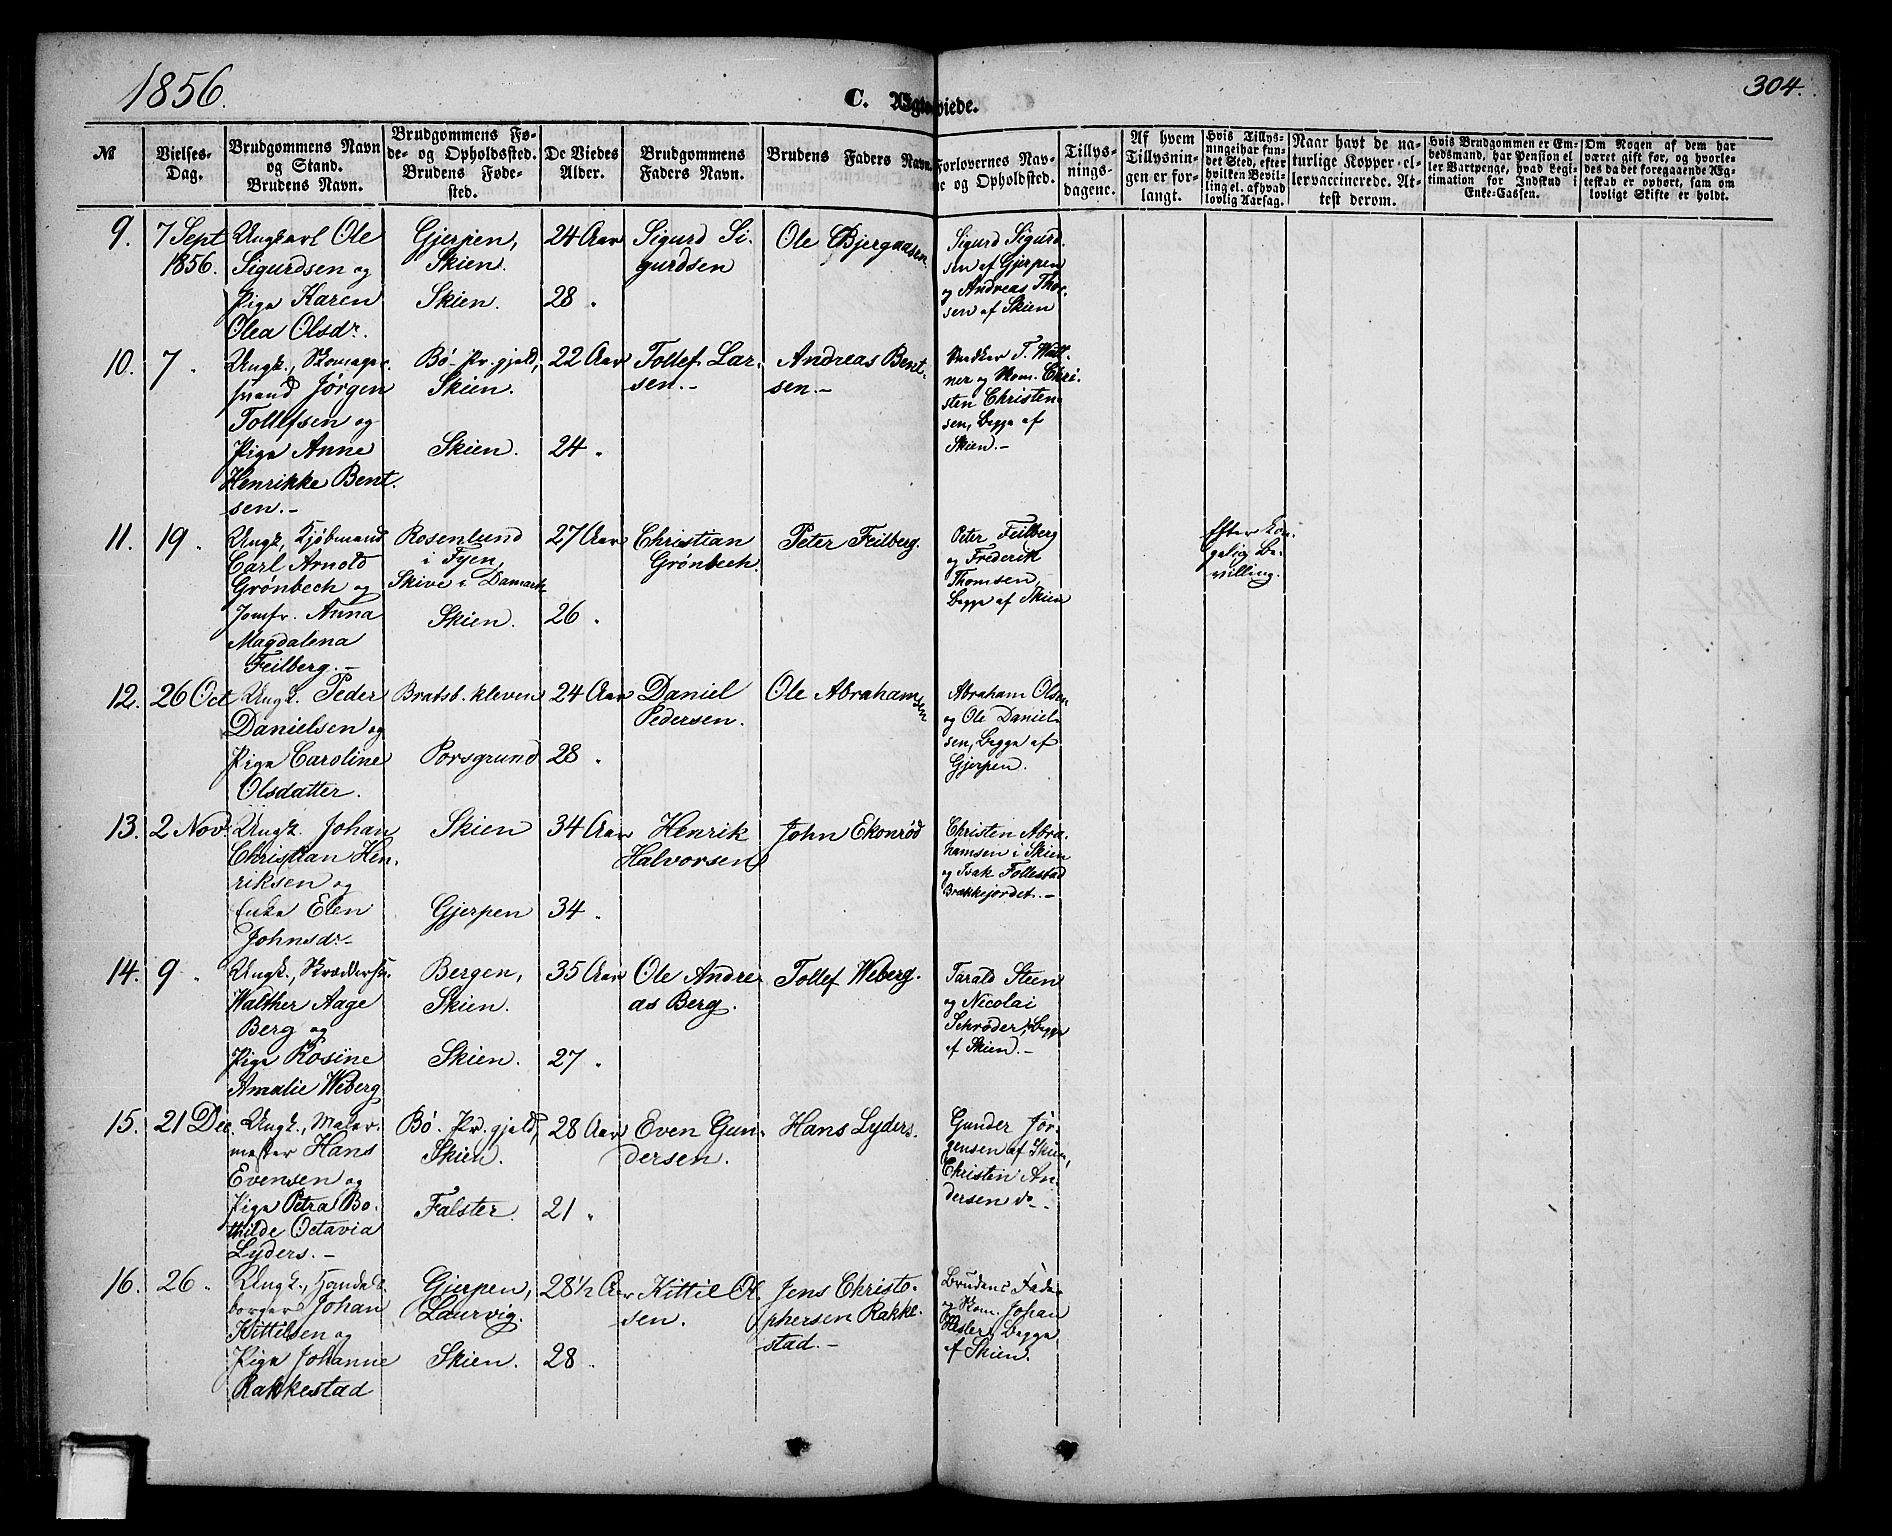 1856.
304.
C. Ægteviede.
№
Vielses-
Dag.
Brudgommens Navn
og Stand.
Brudens Navn.
Brudgommens Fø-
de- og Opholdssted.
Brudens Føde-
sted.
De Viedes
Alder.
Brudgommens
Faders Navn.
Brudens Faders Navn.
Forlovernes Nav-
ne og Opholdsted.
Tillys-
nings-
dagene.
Af hvem
Tillysnin-
gen er for-
langt.
Hvis Tillys-
ningei har fun-
det Sted, efter
hvilken Bevil-
ling el. af hvad
lovlig Aarsag.
Naar havt de na-
turlige Kopper el-
ler vaccinerede. At-
test derom.
Hvis Brudgommen er Em-
bedsmand, har Pension el
ler Vartpenge, hvad Legi-
timation for Indskud i
Enke-Cassen.
Om Nogen af dem har
været gift før, og hvorle-
des da det foregaaende Æg-
teskab er ophørt, sam om
lovligt Skifte er holdt.
9. 7 Sept
1856.
Ungkarl Ole
Sigurdsen og
Pige Karen
Olea Olsdr.
Gjerpen,
Skien.
Skien.
24 Aar
28 "
Sigurd Si-
gurdsen
Ole Bjergaasen
Sigurd Sigurd-
sen af Gjerpen
og Andreas Thor-
sen af Skien
10. 7 "
Ungk., Skomager-
svend Jørgen
Tollefsen og
Pige Anne
Henrikke Bent-
sen.-
Bø Pr.gjeld,
Skien.
Skien.
22 Aar
24 "
Tollef Lar-
sen.-
Andreas Bent-
sen.-
Snedker T. Wall-
ner og Skom. Chri-
sten Christen-
sen, begge af
Skien.-
11. 19 "
Ungk. Kjøbmand
Carl Arnold
Grønbech og
Jomfr. Anna
Magdalena
Feilberg.-
Rosenlund
i Fyen,
Skive i Damark
Skien.
27 Aar
26 "
Christian
Grønbech.
Peter Feilberg.
Peter Feilberg
og Frederik
Thomsen,
begge af Skien
Efter kon-
gelig Be-
villing.
12. 26 Oct
Ungk. Peder
Danielsen og
Pige Caroline
Olsdatter.
Bratsb. kleven
Porsgrund
24 Aar
28 "
Daniel
Pedersen.
Ole Abrahamsen
Abraham Olsen
og Ole Daniel-
sen, begge af
Gjerpen.
13. 2 Novr
Ungk. Johan
Christian Hen-
riksen og
Enke Elen
Johnsdr-
Skien
Gjerpen
34 Aar
34 "
Henrik
Halvorsen
John Ekonrød
Christen Abra-
hamsen i Skien
og Isak Follestad
Brækkejordet.-
14. 9 "
Ungk., Skrædders.
Walther Aage
Berg og
Pige Rosine
Amalie Weberg
Bergen,
Skien.
Skien.
35 Aar
27 "
Ole Andre-
as Berg.
Tollef Weberg.
Tarald Steen
og Nicolai
Schrøder, begge
af Skien.-
15. 21 Dec.
Ungk., Maler-
mester Hans
Evensen og
Pige Petra Bo-
thilde Octavia
Lyders.-
Bø Pr.gjeld,
Skien.
Falster.
28 Aar
21 "
Even Gun-
dersen.
Hans Lyders.
Gunder Jør-
gensen af Skien,
Christen An-
dersen do-
16. 26 "
Ungk., Handels-
borger Johan
Kittilsen og
Pige Johanne
Rakkestad
Gjerpen,
Laurvig.
Skien.
28 1/2 Aar
28 "
Kittil Ol-
sen.
Jens Christo-
phersen Rakke-
stad.-
Brudens Fader
og Skom. Johan
Hesler, begge
af Skien.